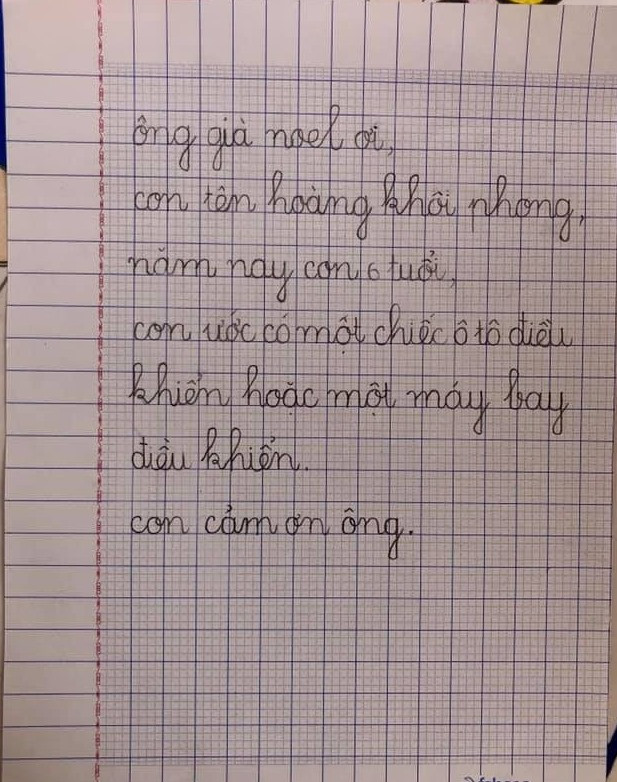 ông già noel ơi,
con tên hoàng khôi phong,
năm nay con 6 tuổi,
con ước có một chiếc ô tô điều
khiển hoặc một máy bay
điều khiển.
con cảm ơn ông.